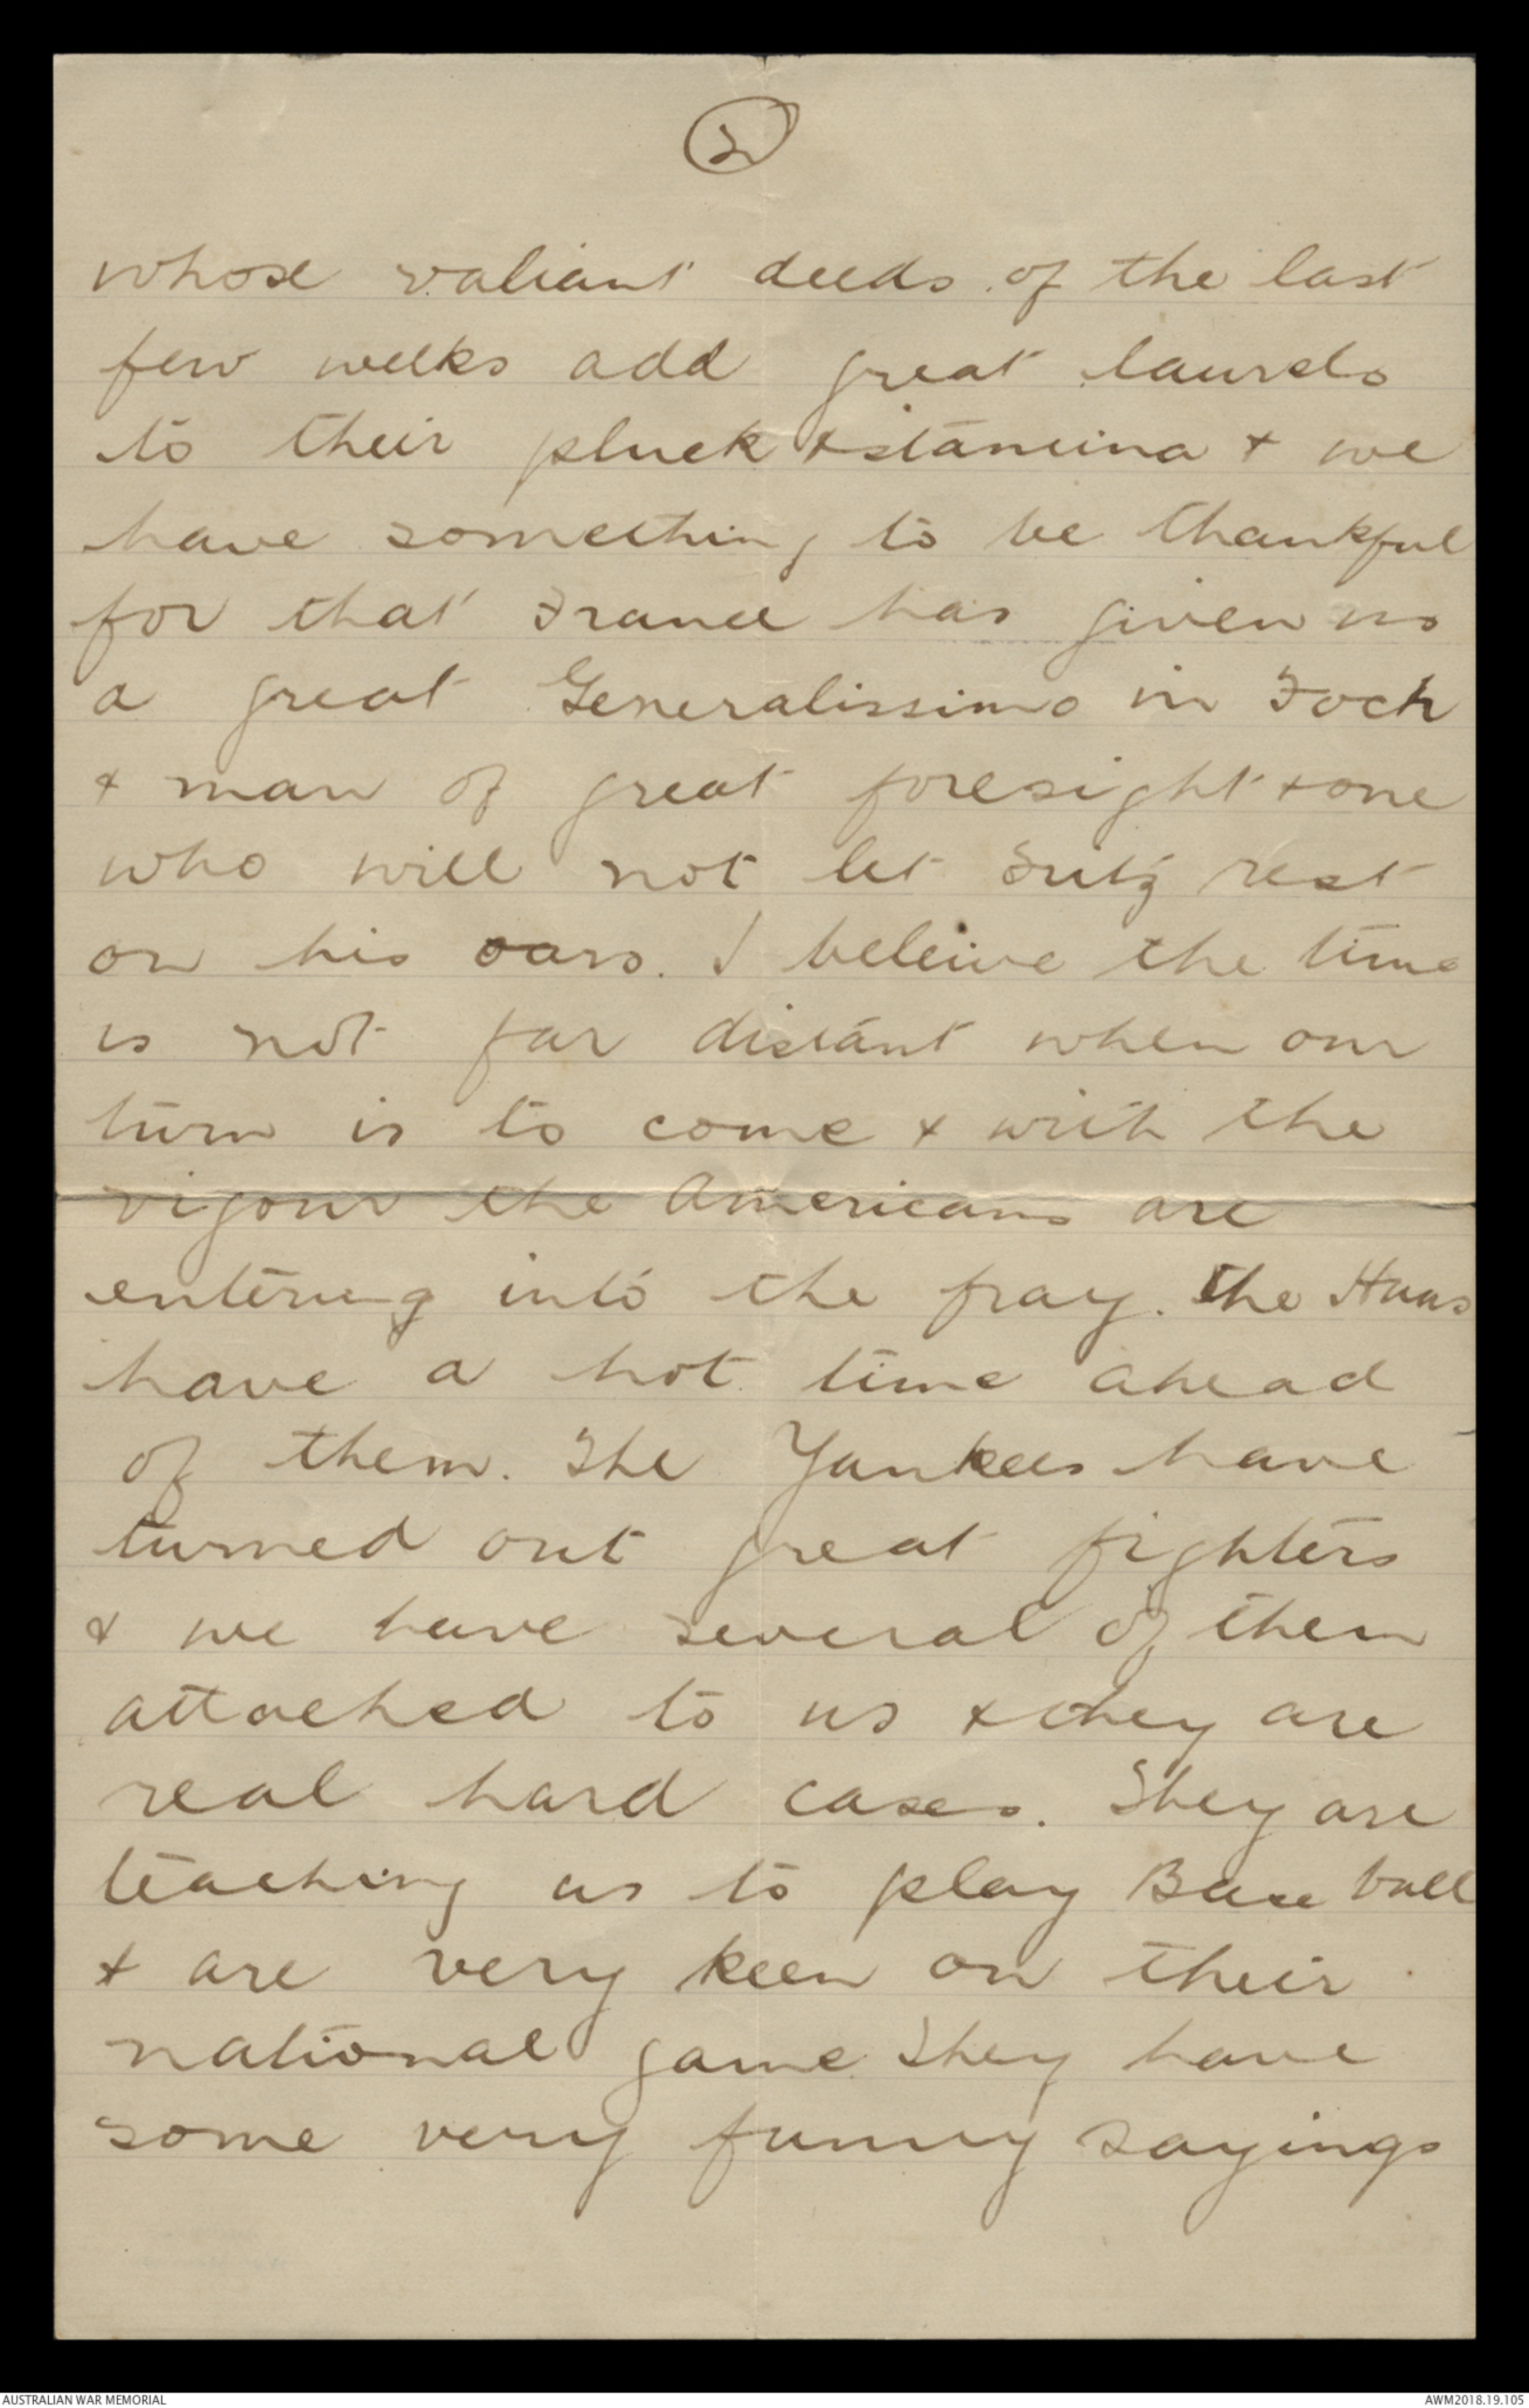 2
whose valiant deeds of the last
few weeks add great laurels
to their pluck & stamina & we
have something to be thankful
for that France has given us
a great Generalissimo in Foch
& man of great foresight & one
who will not let Fritz rest
on his oars. I beleive the time
is not far distant when our
turn is to come & with the
vigour the Americans are
entering into the fray. the Huns
have a hot time ahead
of them. The Yankees have
turned out great fighters
& we have several of them
attached to us & they are
real hard cases. They are
teaching us to play Base ball
& are very keen on their
national game They have
some very funny sayings
AUSTRALIAN WAR MEMORIAL
AWM2018.19.105